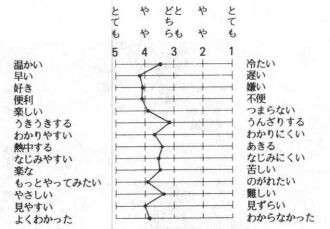 とても やや どちらとも やや とても
5 4 3 2 1
温かい 冷たい
早い 遅い
好き 嫌い
便利 不便
楽しい つまらない
うきうきする うんざりする
わかりやすい わかりにくい
熱中する あきる
なじみやすい なじみにくい
楽な 苦しい
もっとやってみたい のがれたい
やさしい 難しい
見やすい 見ずらい
よくわかった わからなかった